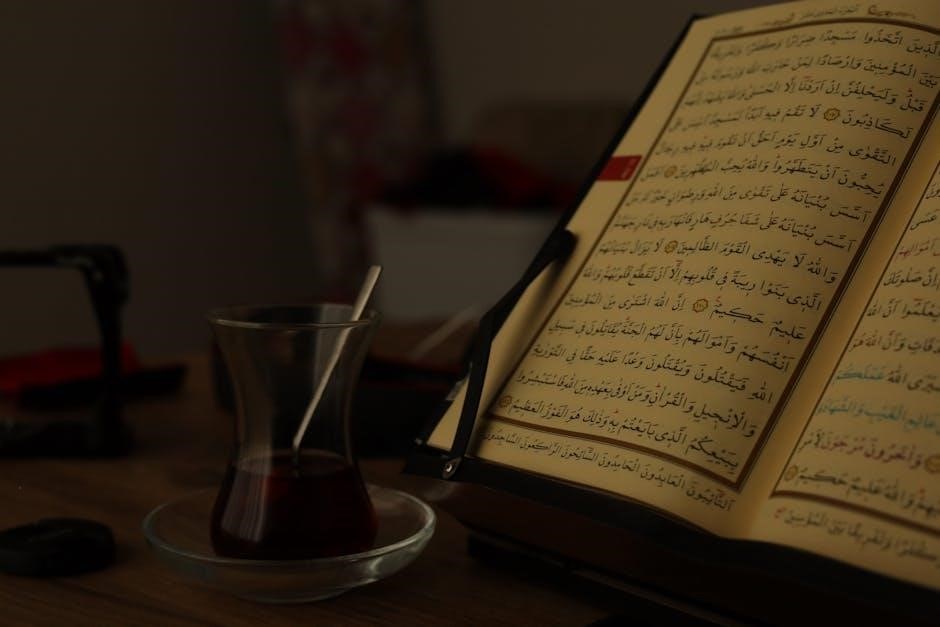 اَلَّذِينَ اتَّخَذُوا مَسْجِدًا ضِرَارًا وَكُفْرًا وَتَفْرِيقًا
بَيْنَ الْمُؤْمِنِينَ وَاِرْصَادًا لِمَنْ حَارَبَ اللهَ وَرَسُولَهُ مِنْ
قَبْلُ وَلَيَحْلِفُنَّ اِنْ اَرَدْنَا اِلَّا الْحُسْنٰى وَاللهُ يَشْهَدُ اِنَّهُمْ
لَكَاذِبُونَ لَا تَقُمْ فِيهِ اَبَدًا لَمَسْجِدٌ اُسِّسَ عَلَى
التَّقْوٰى مِنْ اَوَّلِ يَوْمٍ اَحَقُّ اَنْ تَقُومَ فِيهِ فِيهِ رِجَالٌ
يُحِبُّونَ اَنْ يَتَطَهَّرُوا وَاللهُ يُحِبُّ الْمُطَّهِّرِينَ اَفَمَنْ
اَسَّسَ بُنْيَانَهُ عَلٰى تَقْوٰى مِنَ اللهِ وَرِضْوَانٍ خَيْرٌ اَمْ مَنْ
اَسَّسَ بُنْيَانَهُ عَلٰى شَفَا جُرُفٍ هَارٍ فَانْهَارَ بِهِ فِي نَارِ جَهَنَّمَ
وَاللهُ لَا يَهْدِى الْقَوْمَ الظَّالِمِينَ لَا يَزَالُ بُنْيَانُهُمُ
الَّذِى بَنَوْا رِيبَةً فِي قُلُوبِهِمْ اِلَّا اَنْ تَقَطَّعَ قُلُوبُهُمْ وَاللهُ
عَلِيمٌ حَكِيمٌ اِنَّ اللهَ اشْتَرٰى مِنَ الْمُؤْمِنِينَ
اَنْفُسَهُمْ وَاَمْوَالَهُمْ بِاَنَّ لَهُمُ الْجَنَّةَ يُقَاتِلُونَ فِي سَبِيلِ
اللهِ فَيَقْتُلُونَ وَيُقْتَلُونَ وَعْدًا عَلَيْهِ حَقًّا فِي التَّوْرٰيةِ
وَالْاِنْجِيلِ وَالْقُرْاٰنِ وَمَنْ اَوْفٰى بِعَهْدِهِ مِنَ اللهِ فَاسْتَبْشِرُوا
بِبَيْعِكُمُ الَّذِى بَايَعْتُمْ بِهِ وَذٰلِكَ هُوَ الْفَوْزُ الْعَظِيمُ
اَلتَّائِبُونَ الْعَابِدُونَ الْحَامِدُونَ السَّائِحُونَ الرَّاكِعُونَ السَّاجِدُونَ
عَسَى
اَمْوَالِهِمْ
اِنَّ صَلٰوتَكَ
يَعْلَمُوا اَنَّ اللهَ
وَاَنَّ اللهَ هُوَ
فَسَيَرَى اللهُ عَمَلَكُمْ
عَالِمِ الْغَيْبِ وَالشَّهَادَةِ
وَاٰخَرُونَ مُرْجَوْنَ لِاَمْرِ
وَاللهُ عَلِيمٌ حَكِيمٌ
وَكُفْرًا وَتَفْرِيقًا بَيْنَ الْمُؤْمِنِينَ